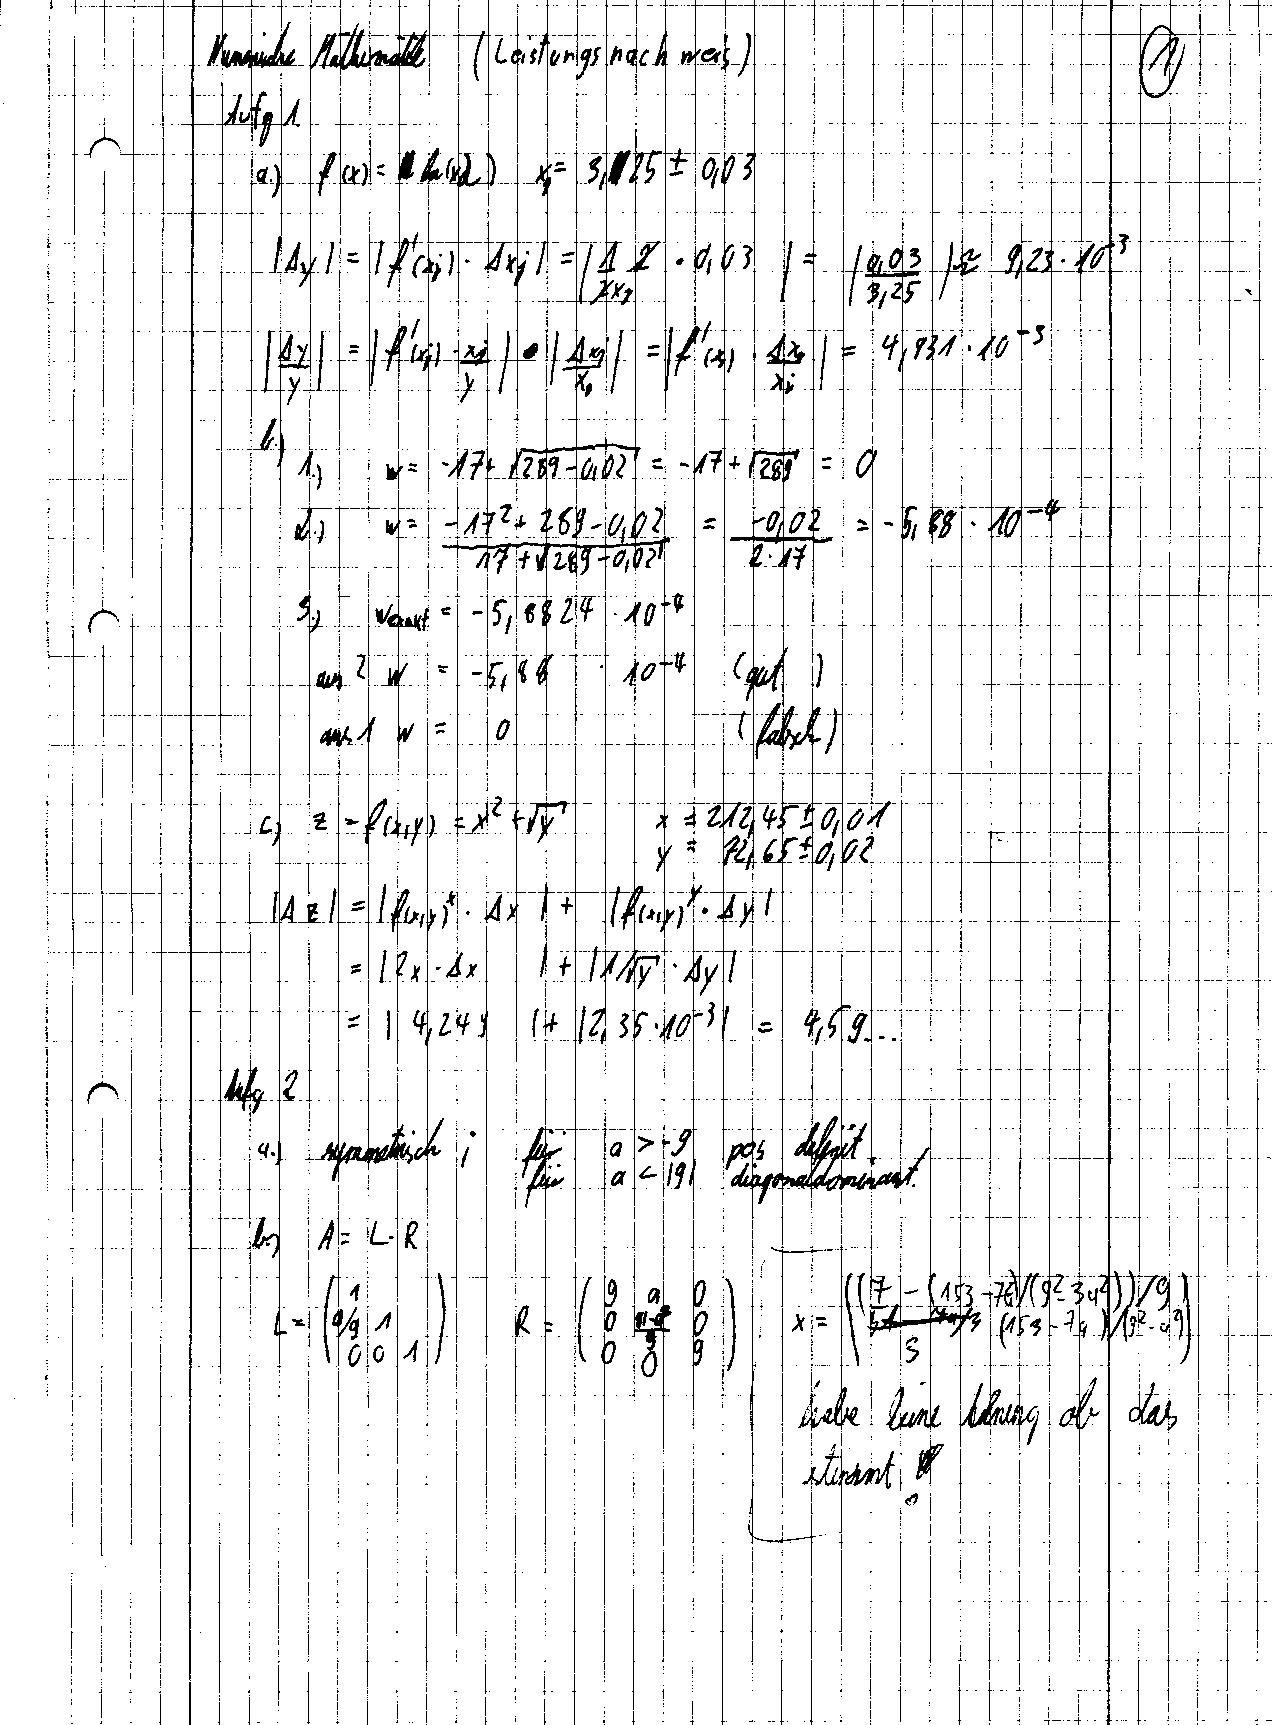 Numerische Mathematik (Leistungsnachweis)
1
Aufg 1.
a.) f(x) = ln(x2) xj = 3,25 ± 0,03
|Δy| = |f'(xj) · Δxj| = |1/2xj 2 · 0,03| = |0,03/3,25| ≈ 9,23 · 10^-3
|Δy/y| = |f'(xj) · xj/y| · |Δxj/xj| = |f'(xj) · Δxj/xj| = 4,931 · 10^-3
b.)
1.) w = -17 + √(289 - 0,02) = -17 + √289 = 0
2.) w = (-17² + 289 - 0,02)/(17 + √(289 - 0,02)) = -0,02/(2 · 17) = -5,88 · 10^-4
3.) wexakt = -5,8824 · 10^-4
aus 2 w = -5,88 · 10^-4 (gut)
aus 1 w = 0 (falsch)
c.) z = f(x,y) = x² + √y x = 212,45 ± 0,01
y = 72,65 ± 0,02
|Δz| = |f(x,y)^x · Δx| + |f(x,y)^y · Δy|
= |2x · Δx| + |1/√y · Δy|
= |4,249| + |2,35 · 10^-3| = 4,59...
Aufg 2
a.) symmetrisch ; für a > -9 pos definit.
für a < |9| diagonaldominant.
b.) A = L · R
L = (1
9/9 1
0 0 1) R = (9 a 0
0 0
0 0 9) x = ((7 - (153 - 7a)/(9² - 3a²))/9)
(153 - 7a)/(9² - a²)
3
habe keine Ahnung ob das
stimmt